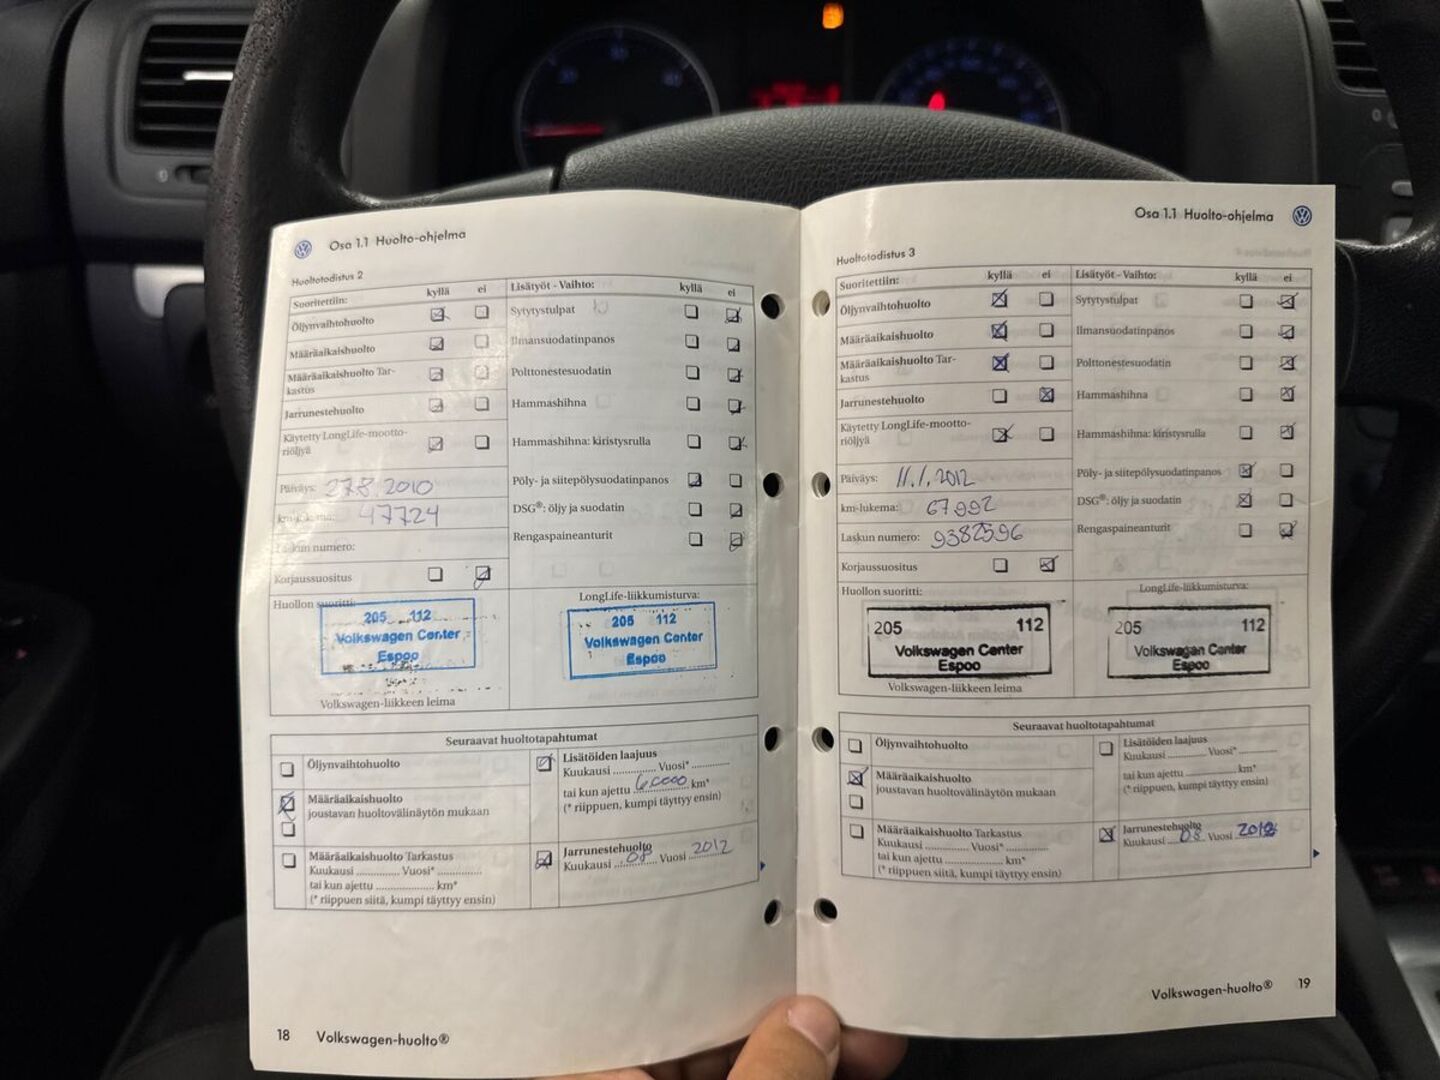 Osa 1.1 Huolto-ohjelma
Huoltotodistus 2
Suoritettiin: kyllä ei
Öljynvaihtohuolto
Määräaikaishuolto
Määräaikaishuolto Tar-
kastus
Jarrunestehuolto
Käytetty LongLife-mootto-
riöljyä
Päiväys: 27.8.2010
km-lukema: 47724
Laskun numero:
Korjaussuositus
Lisätyöt - Vaihto: kyllä ei
Sytytystulpat
Ilmansuodatinpanos
Polttonestesuodatin
Hammashihna
Hammashihna: kiristysrulla
Pöly- ja siitepölysuodatinpanos
DSG®: öljy ja suodatin
Rengaspaineanturit
Huollon suoritti:
205 112
Volkswagen Center
Espoo
Volkswagen-liikkeen leima
LongLife-liikkumisturva:
205 112
Volkswagen Center
Espoo
Seuraavat huoltotapahtumat
Öljynvaihtohuolto
Määräaikaishuolto
joustavan huoltovälinäytön mukaan
Määräaikaishuolto Tarkastus
Kuukausi .............. Vuosi* ..............
tai kun ajettu .................. km*
(* riippuen siitä, kumpi täyttyy ensin)
Lisätöiden laajuus
Kuukausi .............. Vuosi* ..............
tai kun ajettu 60000 km*
(* riippuen, kumpi täyttyy ensin)
Jarrunestehuolto
Kuukausi 08 Vuosi 2012
18 Volkswagen-huolto®
Osa 1.1 Huolto-ohjelma
Huoltotodistus 3
Suoritettiin: kyllä ei
Öljynvaihtohuolto
Määräaikaishuolto
Määräaikaishuolto Tar-
kastus
Jarrunestehuolto
Käytetty LongLife-mootto-
riöljyä
Päiväys: 11.1.2012
km-lukema: 67992
Laskun numero: 9382596
Korjaussuositus
Lisätyöt - Vaihto: kyllä ei
Sytytystulpat
Ilmansuodatinpanos
Polttonestesuodatin
Hammashihna
Hammashihna: kiristysrulla
Pöly- ja siitepölysuodatinpanos
DSG®: öljy ja suodatin
Rengaspaineanturit
Huollon suoritti:
205 112
Volkswagen Center
Espoo
Volkswagen-liikkeen leima
LongLife-liikkumisturva:
205 112
Volkswagen Center
Espoo
Seuraavat huoltotapahtumat
Öljynvaihtohuolto
Määräaikaishuolto
joustavan huoltovälinäytön mukaan
Määräaikaishuolto Tarkastus
Kuukausi .............. Vuosi* ..............
tai kun ajettu .................. km*
(* riippuen siitä, kumpi täyttyy ensin)
Lisätöiden laajuus
Kuukausi .............. Vuosi* ..............
tai kun ajettu .................. km*
(* riippuen, kumpi täyttyy ensin)
Jarrunestehuolto
Kuukausi 08 Vuosi 2012
Volkswagen-huolto® 19